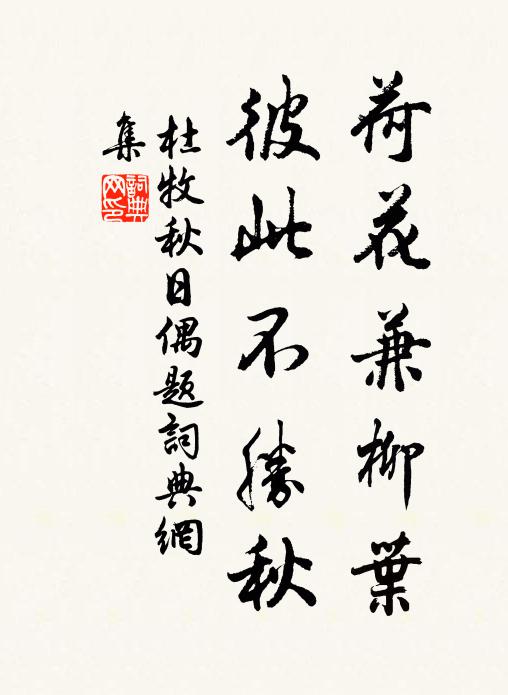 荷花兼柳葉
彼此不勝秋
杜牧秋日偶題詞典網
集
詞典
网印